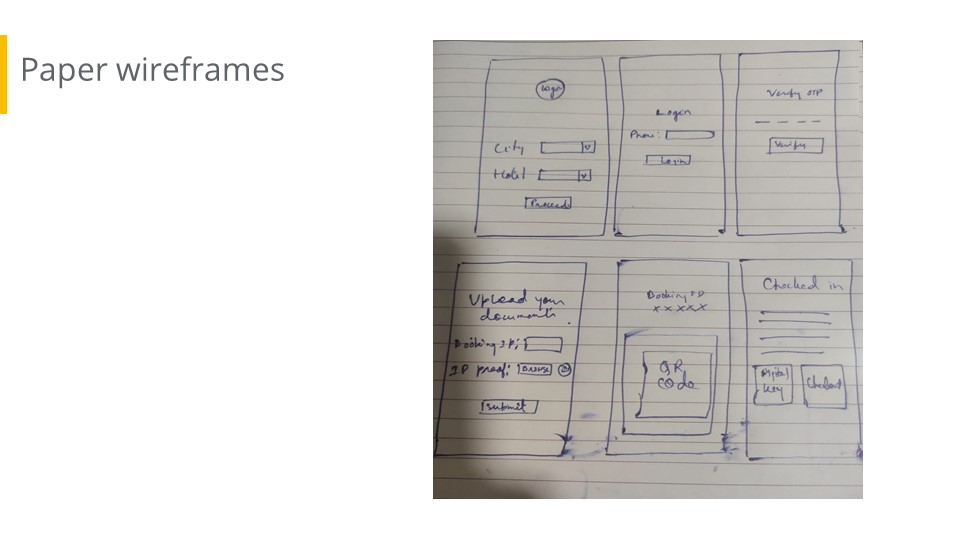 Paper wireframes
Logo
City
Hotel
Proceed
Login
Phone:
Login
Verify OTP
Verify
Upload your
documents.
Booking ID:
ID proof: Browse
Submit
Booking ID
XXXXX
QR
Code
Checked in
Digital
key
Checkout